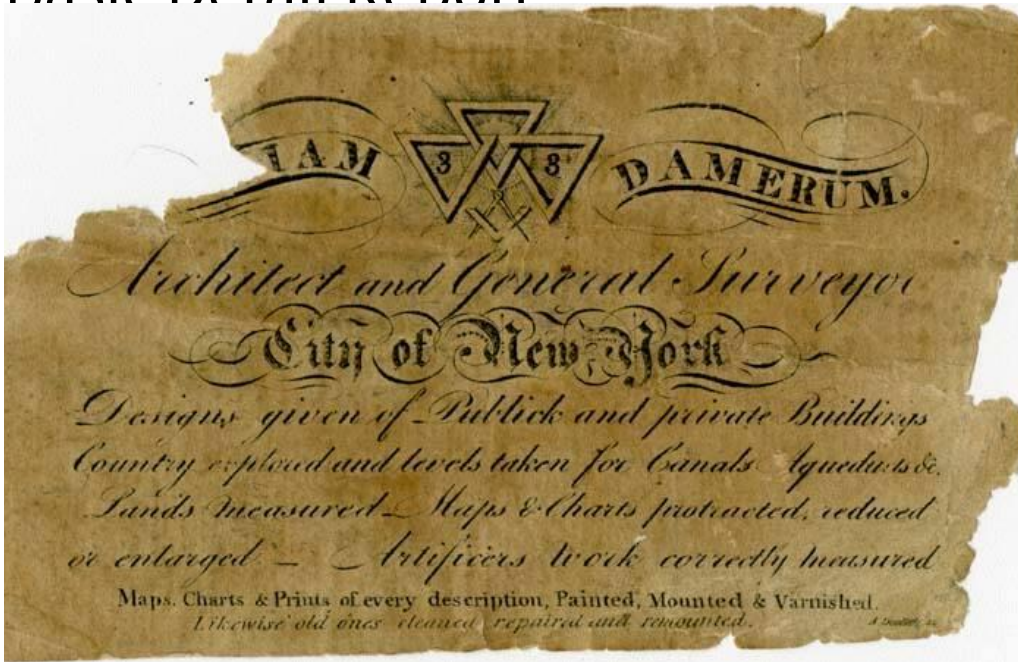 IAM 3 3 DAMERUM.
Architect and General Surveyor
City of New York
Designs given of Publick and private Buildings
Country explored and levels taken for Canals Aqueducts &c.
Lands measured - Maps & Charts protracted, reduced
or enlarged - Artificers Work correctly measured
Maps, Charts & Prints of every description, Painted, Mounted & Varnished.
Likewise old ones cleaned repaired and remounted.